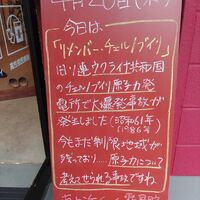 4月26日(木)
今日は…
「リメンバー・チェルノブイリ」
旧ソ連ウクライナ共和国
のチェルノブイリ原子力発
電所で大爆発事故が
発生しました(昭和61年)
(1986年)
今もまだ制限地域が
残っており……原子力について
考えさせられる事故ですね